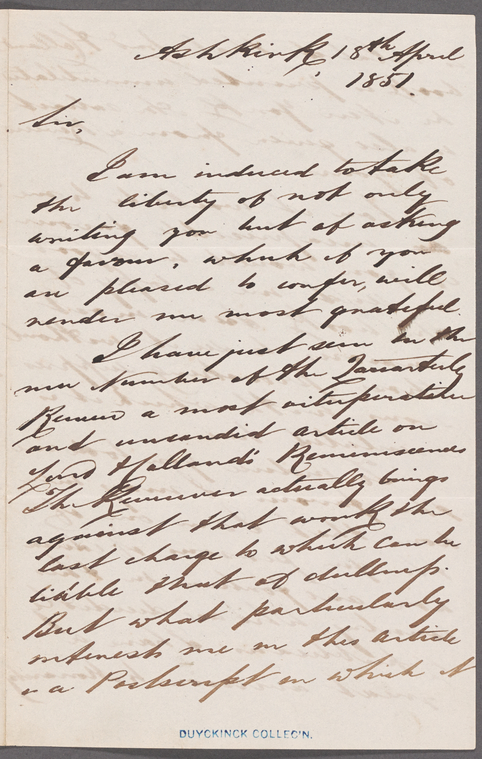 Ashkirk, 18th April
1851.
Sir,
I am induced to take
the liberty of not only
writing you but of asking
a favour, which if you
are pleased to confer, will
render me most grateful.
I have just seen in the
new Number of the Quarterly
Review a most vituperative
and uncandid article on
Lord Holland's Reminiscences
The Reviewer actually brings
against that work the
last charge to which can be
liable that of dullness.
But what particularly
interests me in this article
is a Postscript in which it
DUYCKINCK COLLEC'N.